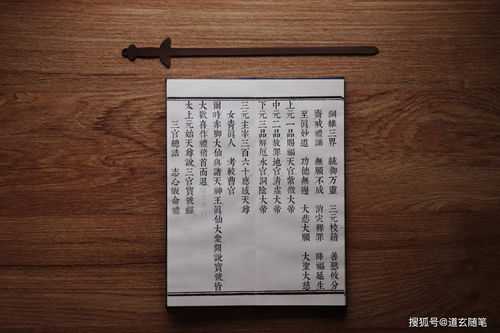 綱維三界 統御万靈 三元校籍 善惡攸分
齋戒禮誦 無願不成 消災釋罪 降福延生
至眞妙道 功德無邊 大悲大願 大聖大慈
上元一品賜福天官紫微大帝
中元二品赦罪地官清虛大帝
下元三品解厄水官洞陰大帝
三元主宰三百六十應感天尊
女青眞人 考較曹官
爾時赤脚大仙與諸天神王眞仙大衆聞說寶號皆
大歡喜作禮稽首而退
太上元始天尊說三官寶號經
三官總誥 志心皈命禮
搜狐号@道玄随笔